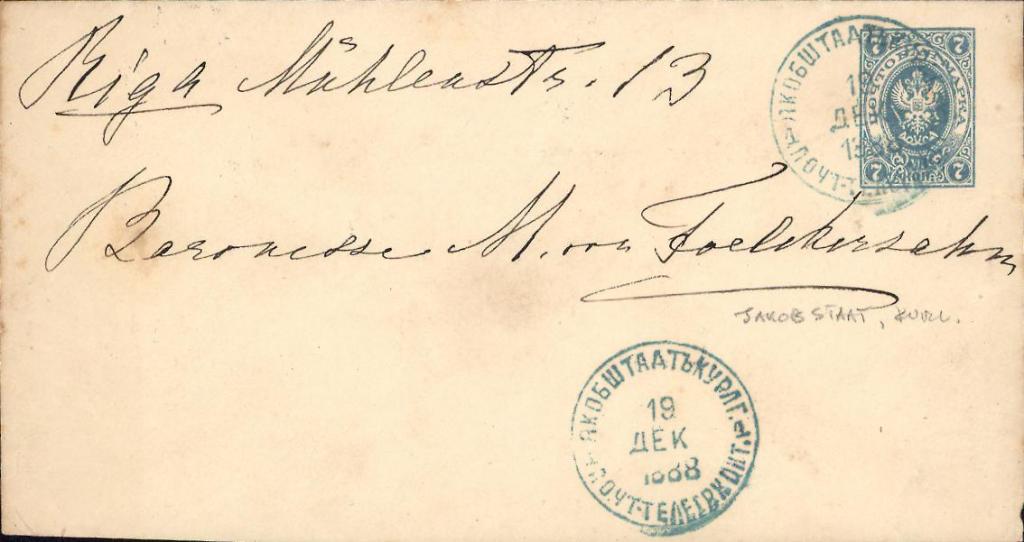 Riga Mühlenstr. 13
Baronesse M. von Foelckersahm
JAKOBSTAAT, KURL.
ЯКОБШТАТЪ
19
ДЕК
7 7
ПОЧТОВАЯ МАРКА
7 КОП. 7
ЯКОБШТАТЪ КУРЛ.Г.
19
ДЕК
1888
ПОЧТ-ТЕЛЕГР. КОНТ.